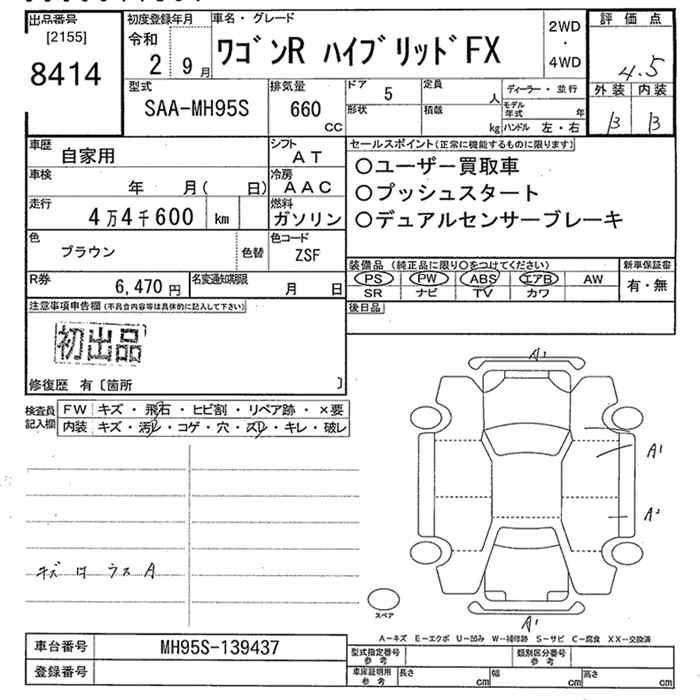 出品番号
[2155]
8414
初度登録年月
令和
2 9月
車名・グレード
ワゴンR ハイブリッドFX
2WD
・
4WD
評価点
4.5
外装 内装
B B
型式
SAA-MH95S
排気量
660
CC
ドア 5
形状
定員
人
積載
kg
ディーラー・並行
モデル年式 年
ハンドル 左・右
車歴
自家用
シフト
AT
車検
年 月( 日)
冷房
AAC
走行
4万4千600 km
燃料
ガソリン
色
ブラウン
色替
色コード
ZSF
R券
6,470円
名変通知期限
月 日
セールスポイント(正常に機能するものに限ります)
○ユーザー買取車
○プッシュスタート
○デュアルセンサーブレーキ
装備品 (純正品に限り○をつけてください)
PS PW ABS エアB AW
SR ナビ TV カワ
新車保証書
有・無
後日品
注意事項申告欄(不具合内容等は具体的に記入して下さい)
初出品
修復歴 有〔箇所 〕
検査員
記入欄
FW キズ・飛石・ヒビ割・リペア跡・×要
内装 キズ・汚レ・コゲ・穴・スレ・キレ・破レ
キズ ウスA
A1
A1
A2
A1
スペア
A-キズ E-エクボ U-凹み W-補修跡 S-サビ C-腐食 XX-交換済
車台番号
MH95S-139437
登録番号
型式指定番号
参考
類別区分番号
参考
車庫証明用
参考
長さ cm
幅 cm
高さ cm